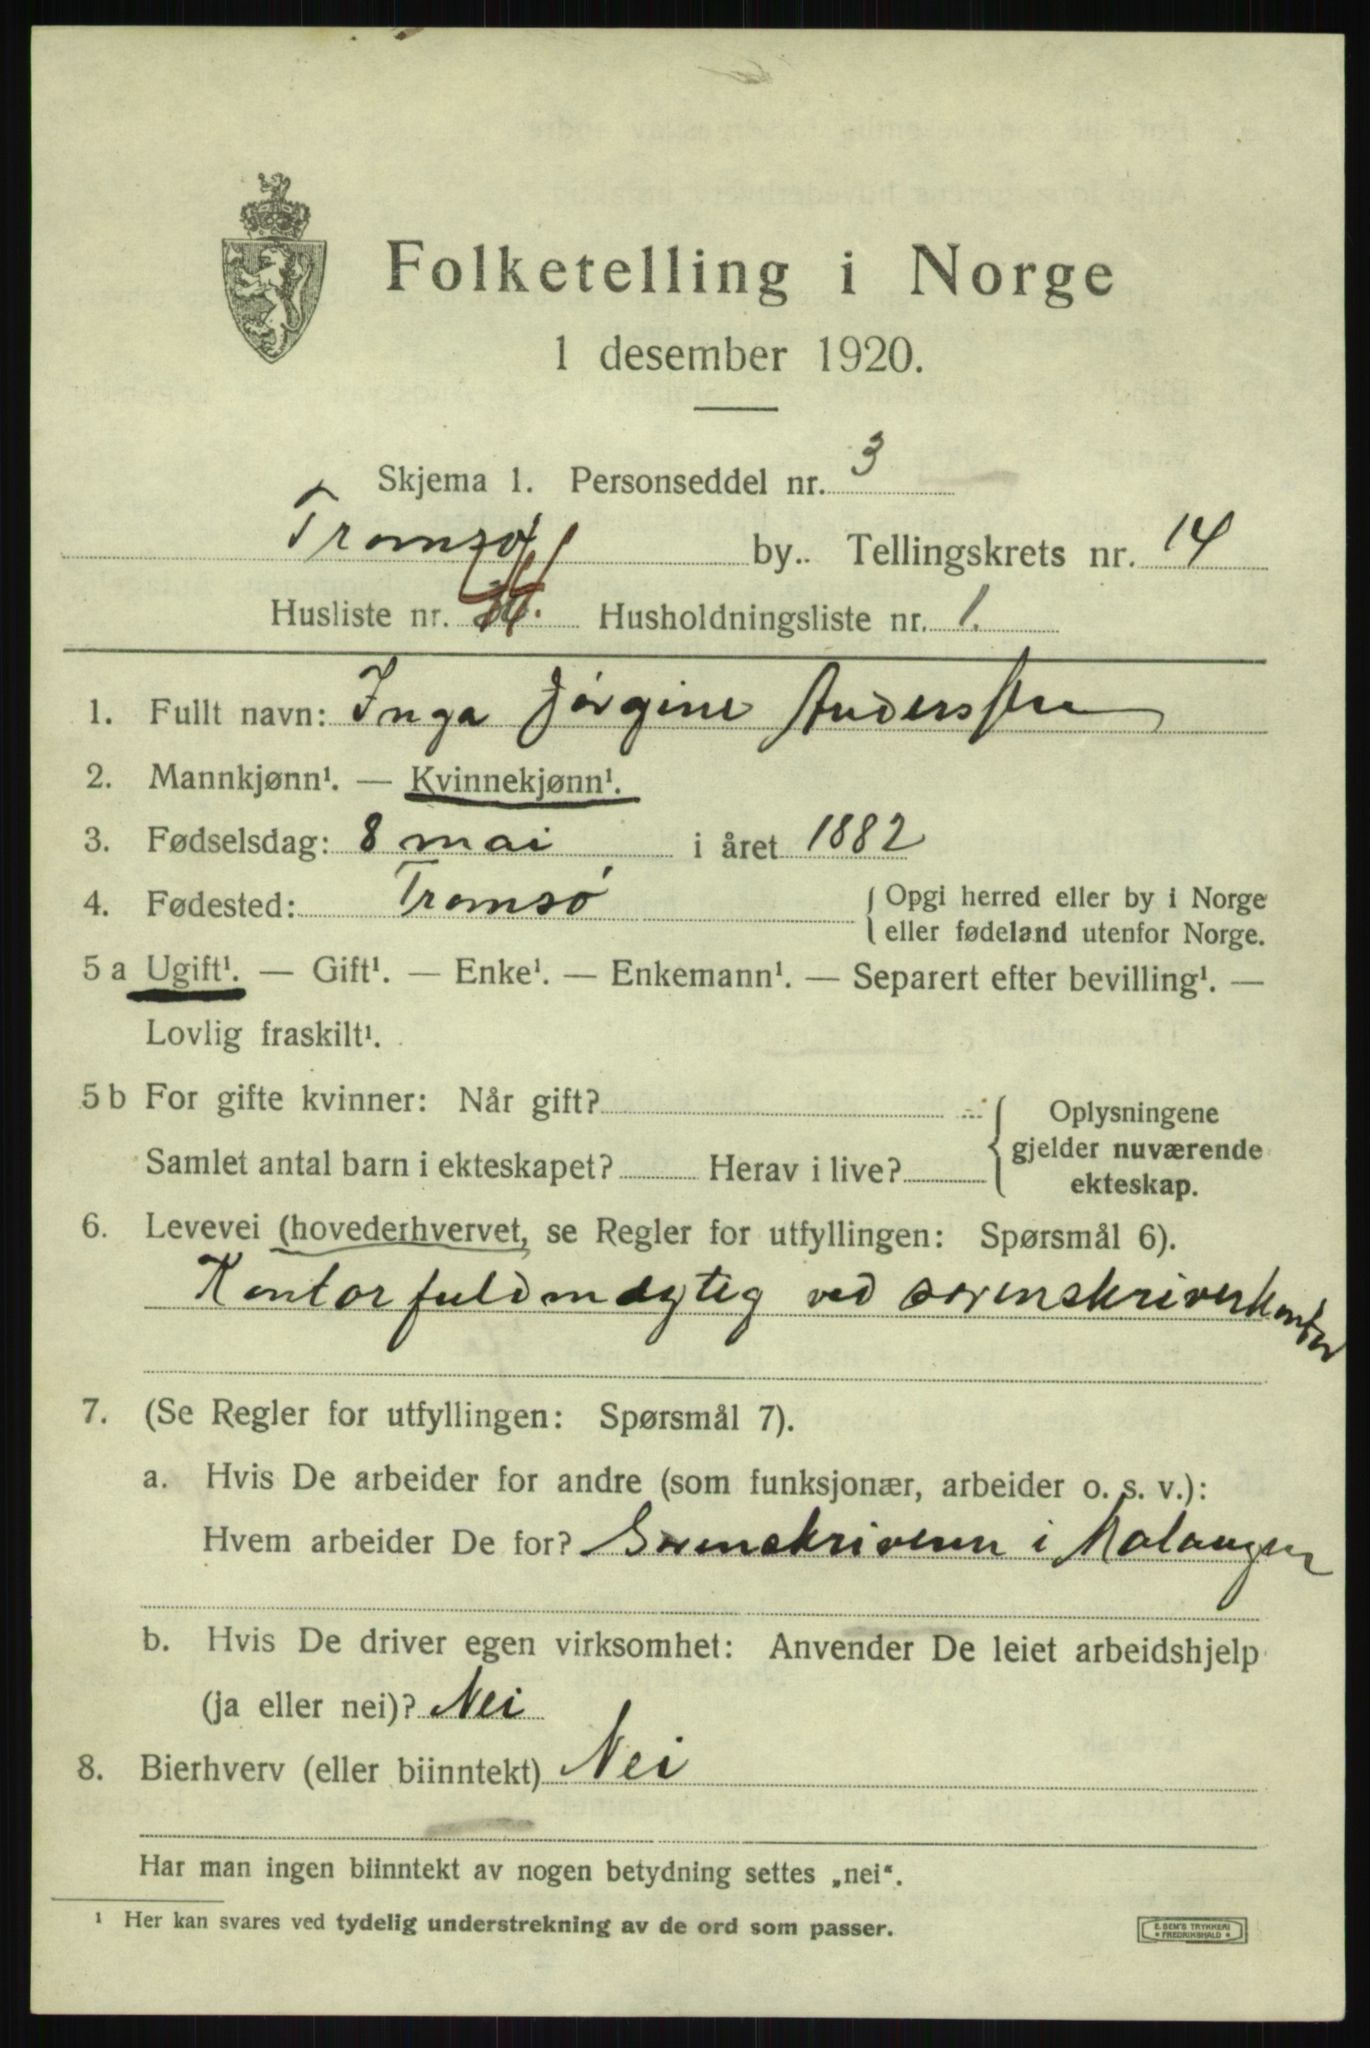 Folketelling i Norge
1 desember 1920.
Skjema 1. Personseddel nr. 3
Tromsø by. Tellingskrets nr. 14
Husliste nr. Husholdningsliste nr. 1.
1. Fullt navn: Inga Jørgine Anderssen
2. Mannkjønn¹. — Kvinnekjønn¹.
3. Fødselsdag: 8 mai i året 1882
4. Fødested: Tromsø { Opgi herred eller by i Norge
eller fødeland utenfor Norge.
5 a Ugift¹. — Gift¹. — Enke¹. — Enkemann¹. — Separert efter bevilling¹. —
Lovlig fraskilt¹.
5 b For gifte kvinner: Når gift? { Oplysningene
gjelder nuværende
Samlet antal barn i ekteskapet? Herav i live?
ekteskap.
6. Levevei (hovederhvervet, se Regler for utfyllingen: Spørsmål 6).
Kontorfuldmægtig ved sorenskriverkontor
7. (Se Regler for utfyllingen: Spørsmål 7).
a. Hvis De arbeider for andre (som funksjonær, arbeider o. s. v.):
Hvem arbeider De for? Sorenskriveren i Malangen
b. Hvis De driver egen virksomhet: Anvender De leiet arbeidshjelp
(ja eller nei)? Nei
8. Bierhverv (eller biinntekt) Nei
Har man ingen biinntekt av nogen betydning settes „nei“.
¹ Her kan svares ved tydelig understrekning av de ord som passer.
E. SEM'S TRYKKERI
FREDRIKSHALD